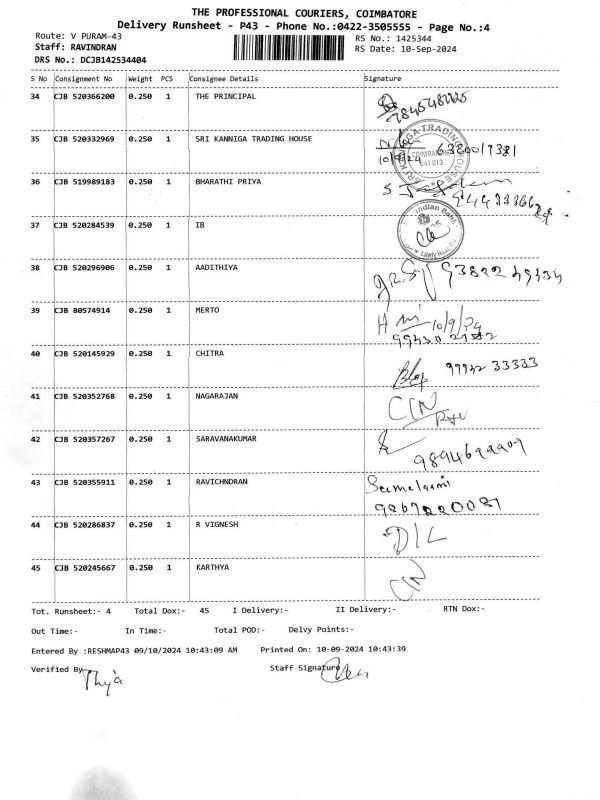 THE PROFESSIONAL COURIERS, COIMBATORE
Delivery Runsheet - P43 - Phone No.:0422-3505555 - Page No.:4
Route: V PURAM-43
RS No.: 1425344
Staff: RAVINDRAN
RS Date: 10-Sep-2024
DRS No.: DCJB142534404
S No Consignment No Weight PCS Consignee Details Signature
34 CJB 520366200 0.250 1 THE PRINCIPAL
35 CJB 520332969 0.250 1 SRI KANNIGA TRADING HOUSE
SRI KANNIGA TRADING HOUSE
COIMBATORE
641 013
10/9/24
36 CJB 519989183 0.250 1 BHARATHI PRIYA
37 CJB 520284539 0.250 1 IB
Indian Bank
38 CJB 520296906 0.250 1 AADITHIYA
39 CJB 80574914 0.250 1 MERTO
10/9/24
40 CJB 520145929 0.250 1 CHITRA
33333
41 CJB 520352768 0.250 1 NAGARAJAN
C/N
42 CJB 520357267 0.250 1 SARAVANAKUMAR
43 CJB 520355911 0.250 1 RAVICHNDRAN
44 CJB 520286837 0.250 1 R VIGNESH
D/L
45 CJB 520245667 0.250 1 KARTHYA
C/N
Tot. Runsheet:- 4 Total Dox:- 45 I Delivery:- II Delivery:- RTN Dox:-
Out Time:- In Time:- Total POD:- Delvy Points:-
Entered By :RESHMAP43 09/10/2024 10:43:09 AM Printed On: 10-09-2024 10:43:39
Verified By
Staff Signature